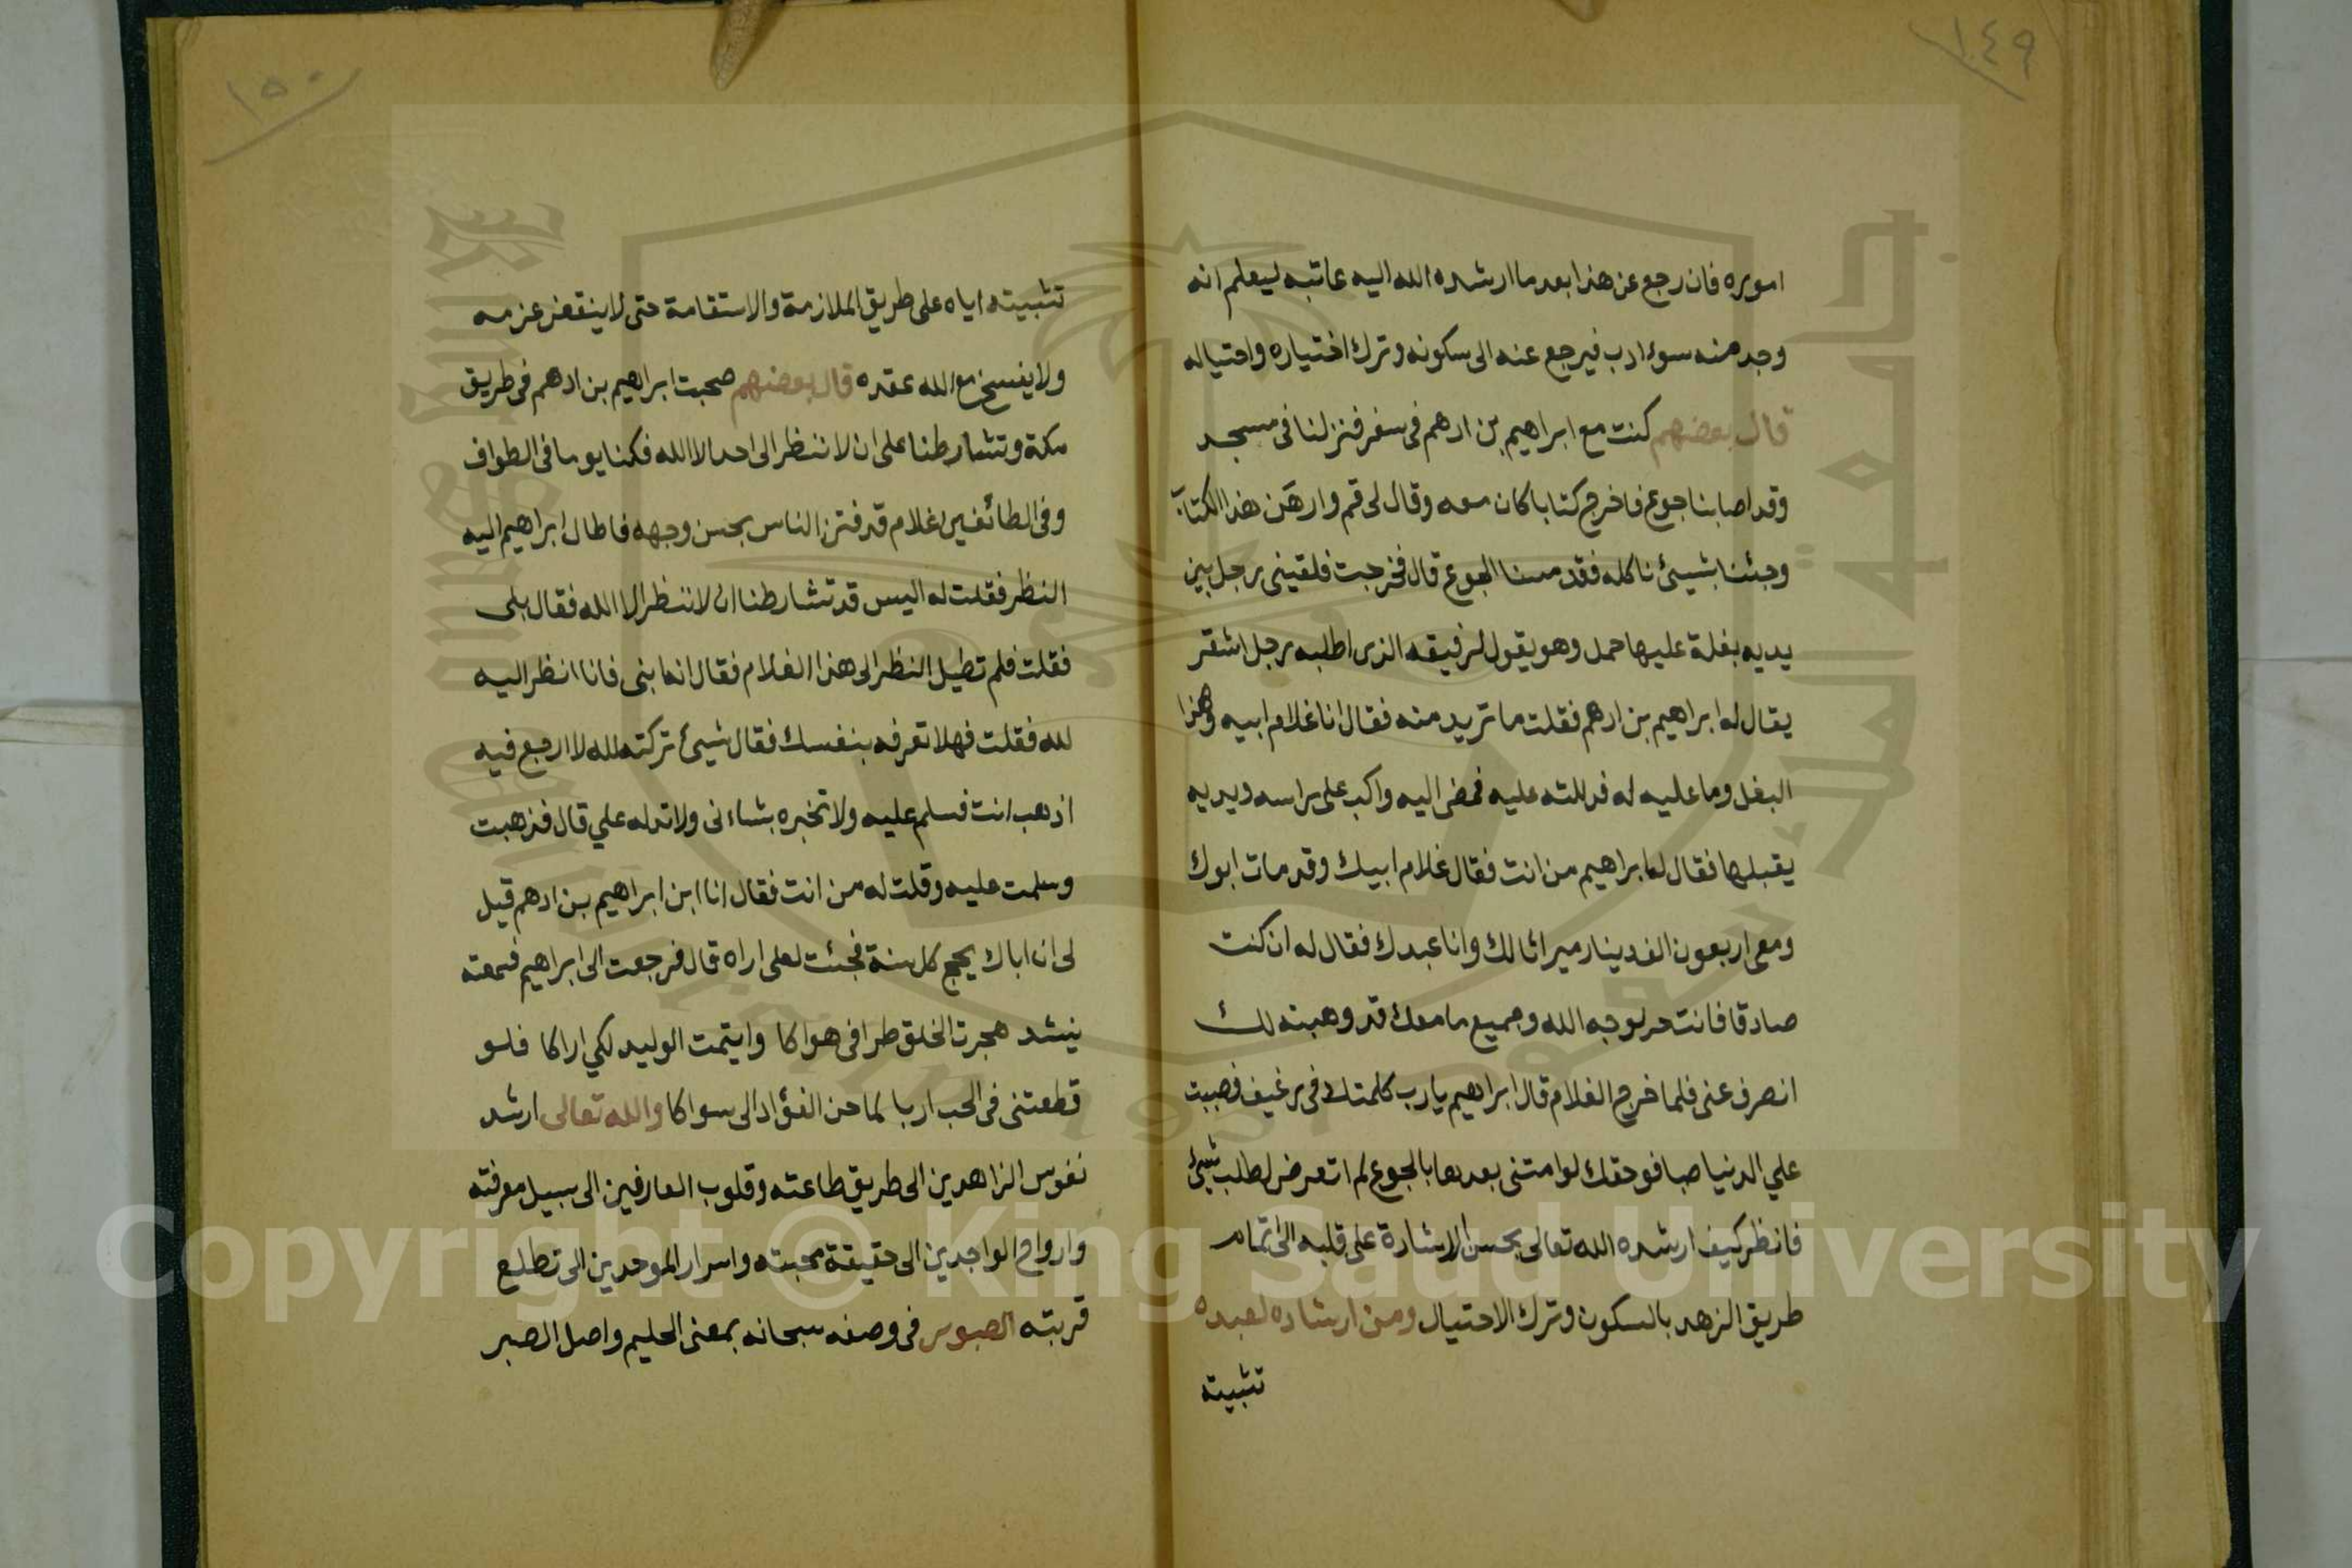 ١٤٩
اموره فان رجع عن هذا بعد ما ارشده الله اليه عاتبه ليعلم انه
وجد منه سوء ادب فيرجع عنه الى سكونه وترك اختياره واحتياله
قال بعضهم كنت مع ابراهيم بن ادهم فى سفر فنزلنا فى مسجد
وقد اصابنا جوع فاخرج كتابا كان معه وقال لى قم وارهن هذا الكتاب
وجئنا بشيئ ناكله فقد مسنا الجوع قال فخرجت فلقينى رجل بين
يديه بغلة عليها حمل وهو يقول لرفيقه الذى اطلبه رجل اشقر
يقال له ابراهيم بن ادهم فقلت ما تريد منه فقال انا غلام ابيه وهذا
البغل وما عليه له فدللته عليه فمضى اليه واكب على راسه ويديه
يقبلها فقال له ابراهيم من انت فقال غلام ابيك وقد مات ابوك
ومعى اربعون الف دينار ميراثا لك وانا عبدك فقال له ان كنت
صادقا فانت حر لوجه الله وجميع ما معك قد وهبته لك
انصرف عنى فلما خرج الغلام قال ابراهيم يا رب كلمتك فى رغيف فصببت
علي الدنيا صبا فوحقك لو امتنى بعدها بالجوع لم اتعرض لطلب شيئ
فانظر كيف ارشده الله تعالى بحسن الاشارة على قلبه الى تمام
طريق الزهد بالسكون وترك الاحتيال ومن ارشاده لعبده
تثبيته
١٥٠
تثبيته اياه على طريق الملازمة والاستقامة حتى لا ينتقض عزمه
ولا يفسخ مع الله عقده قال بعضهم صحبت ابراهيم بن ادهم فى طريق
مكة وتشارطنا على ان لا ننظر الى احد الا الله فكنا يوما فى الطواف
وفى الطائفين غلام قد فتن الناس بحسن وجهه فاطال ابراهيم اليه
النظر فقلت له اليس قد تشارطنا ان لا ننظر الا الله فقال بلى
فقلت فلم تطيل النظر الى هذا الغلام فقال انه ابنى فانا انظر اليه
لله فقلت فهلا تعرفه بنفسك فقال شيئ تركته لله لا ارجع فيه
اذهب انت فسلم عليه ولا تخبره بشانى ولا تدله علي قال فذهبت
وسلمت عليه وقلت له من انت فقال انا ابن ابراهيم بن ادهم قيل
لى ان اباك يحج كل سنة فجئت لعلى اراه قال فرجعت الى ابراهيم فسمعته
ينشد هجرت الخلق طرا فى هواكا وايتمت الوليد لكي اراكا فلو
قطعتنى فى الحب اربا لما حن الفؤاد الى سواكا والله تعالى ارشد
نفوس الزاهدين الى طريق طاعته وقلوب العارفين الى سبيل معرفته
وارواح الواجدين الى حقيقة محبته واسرار الموحدين الى تطلع
قربته الصبور فى وصفه سبحانه بمعنى الحليم واصل الصبر
Copyright © King Saud University
جامعة الملك سعود
King Saud University
1957